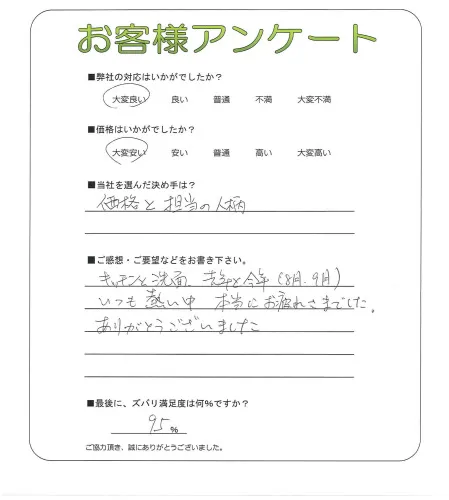 お客様アンケート
■弊社の対応はいかがでしたか?
大変良い 良い 普通 不満 大変不満
■価格はいかがでしたか?
大変安い 安い 普通 高い 大変高い
■当社を選んだ決め手は?
価格と担当の人柄
■ご感想・ご要望などをお書き下さい。
キッチンと洗面、去年と今年(8月、9月)
いつも熱い中 本当にお疲れさまでした。
ありがとうございました
■最後に、ズバリ満足度は何%ですか?
95%
ご協力頂き、誠にありがとうございました。